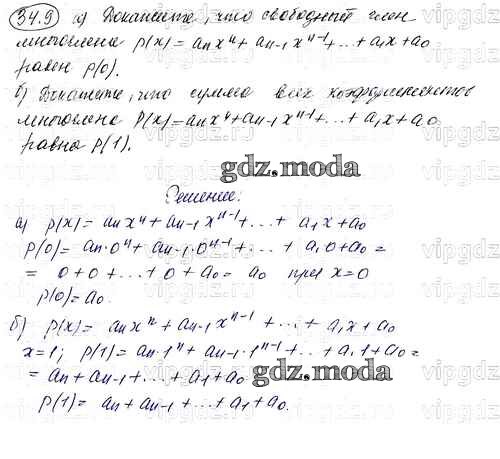 34.9 а) Докажите, что свободный член
многочлена p(x) = aₙxⁿ + aₙ₋₁xⁿ⁻¹ + ... + a₁x + a₀
равен p(0).
б) Докажите, что сумма всех коэффициентов
многочлена P(x) = aₙxⁿ + aₙ₋₁xⁿ⁻¹ + ... + a₁x + a₀
равна p(1).
gdz.moda
Решение:
а) p(x) = aₙxⁿ + aₙ₋₁xⁿ⁻¹ + ... + a₁x + a₀
p(0) = aₙ·0ⁿ + aₙ₋₁·0ⁿ⁻¹ + ... + a₁0 + a₀ =
= 0 + 0 + ... + 0 + a₀ = a₀ при x = 0
p(0) = a₀.
б) p(x) = aₙxⁿ + aₙ₋₁xⁿ⁻¹ + ... + a₁x + a₀
x = 1; p(1) = aₙ·1ⁿ + aₙ₋₁·1ⁿ⁻¹ + ... + a₁1 + a₀ =
= aₙ + aₙ₋₁ + ... + a₁ + a₀
gdz.moda
p(1) = aₙ + aₙ₋₁ + ... + a₁ + a₀.